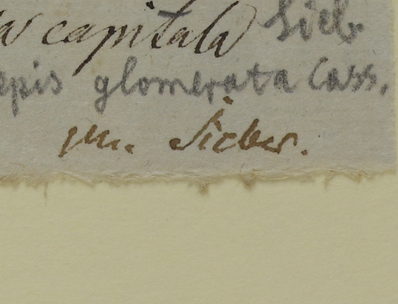 capitata Sieb.
epis glomerata Cass.
Sieber.